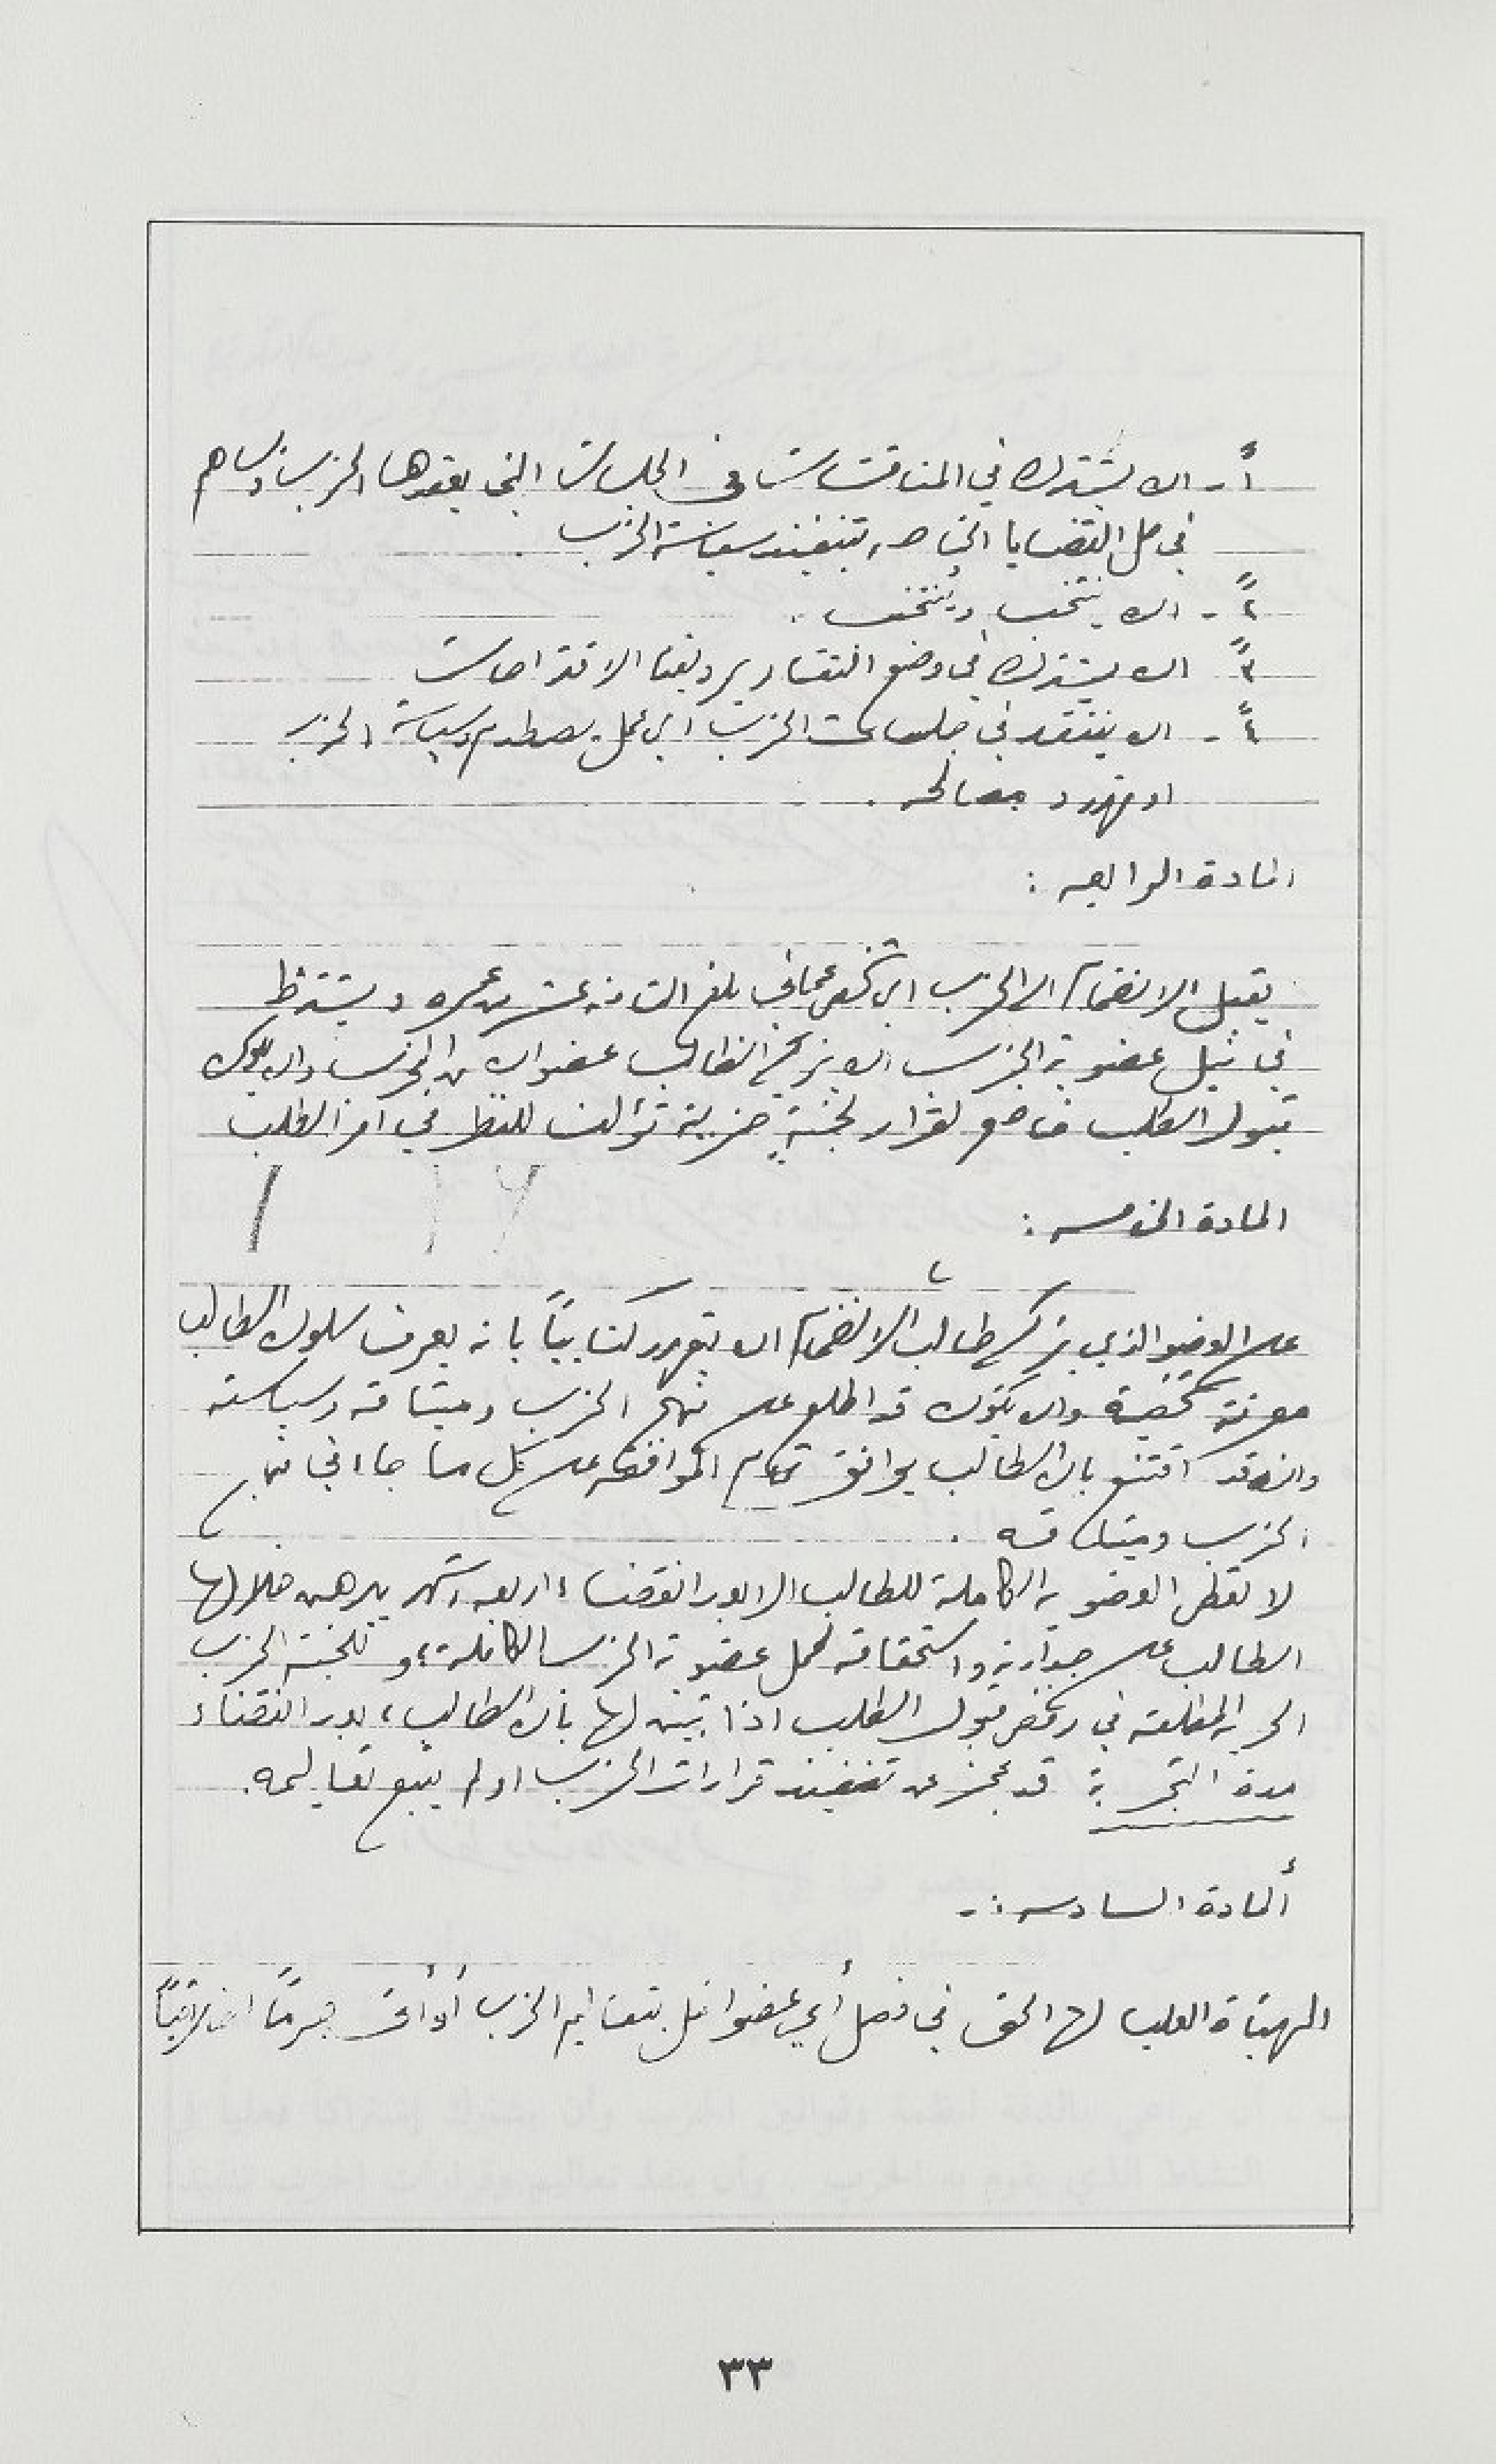 ١ً - ان يشترك في المناقشات وفي الجلسات التي يعقدها الحزب ويساهم
في حل القضايا الخاصه بتنفيذ سياسة الحزب .
٢ً - ان ينتخب ويُنتخب .
٣ً ان يشترك في وضع التقارير وبعث الاقتراحات
٤ً - ان ينتقد في جلسات الحزب اي عمل يصطدم وسياسة الحزب
او يهدد مصالحه .
المادة الرابعه :
يقبل الانضمام الى الحزب اي شخص عماني بلغ الثامنه عشر من عمره ويشترط
في نيل عضوية الحزب ان يزكي الطالب عضوان من الحزب وان يكون
قبول الطلب خاضع لقرار لجنةٍ حزبية تؤلف للنظر في امر الطلب
المادة الخامسه :
على العضو الذي يزكي طالب الانضمام ان يتعهد كتابياً بانه يعرف سلوك الطالب
معرفة شخصية وان يكون قد اطلع على نهج الحزب وميثاقه وسياسته
وانه قد اقتنع بان الطالب يوافق تمام الموافقه على كل ما جاء في نهج
الحزب وميثاقه .
لا تعطى العضويه الكاملة للطالب الا بعد انقضاء اربعه اشهر يبرهن خلالها
الطالب على جدارته واستحقاقه لحمل عضوية الحزب الكاملة ، وللجنة الحزب
الحريه المطلقه في رفض قبول الطلب اذا تبين لها بان الطالب ، بعد انقضاء
مدة التجربة قد عجز عن تنفيذ قرارات الحزب او لم يتبع تعاليمه .
ألمادة السادسه : -
الهيئة العليا لها الحق في فصل أي عضو اخل بتعاليم الحزب أو أتى جرماً اخلاقياً
٣٣